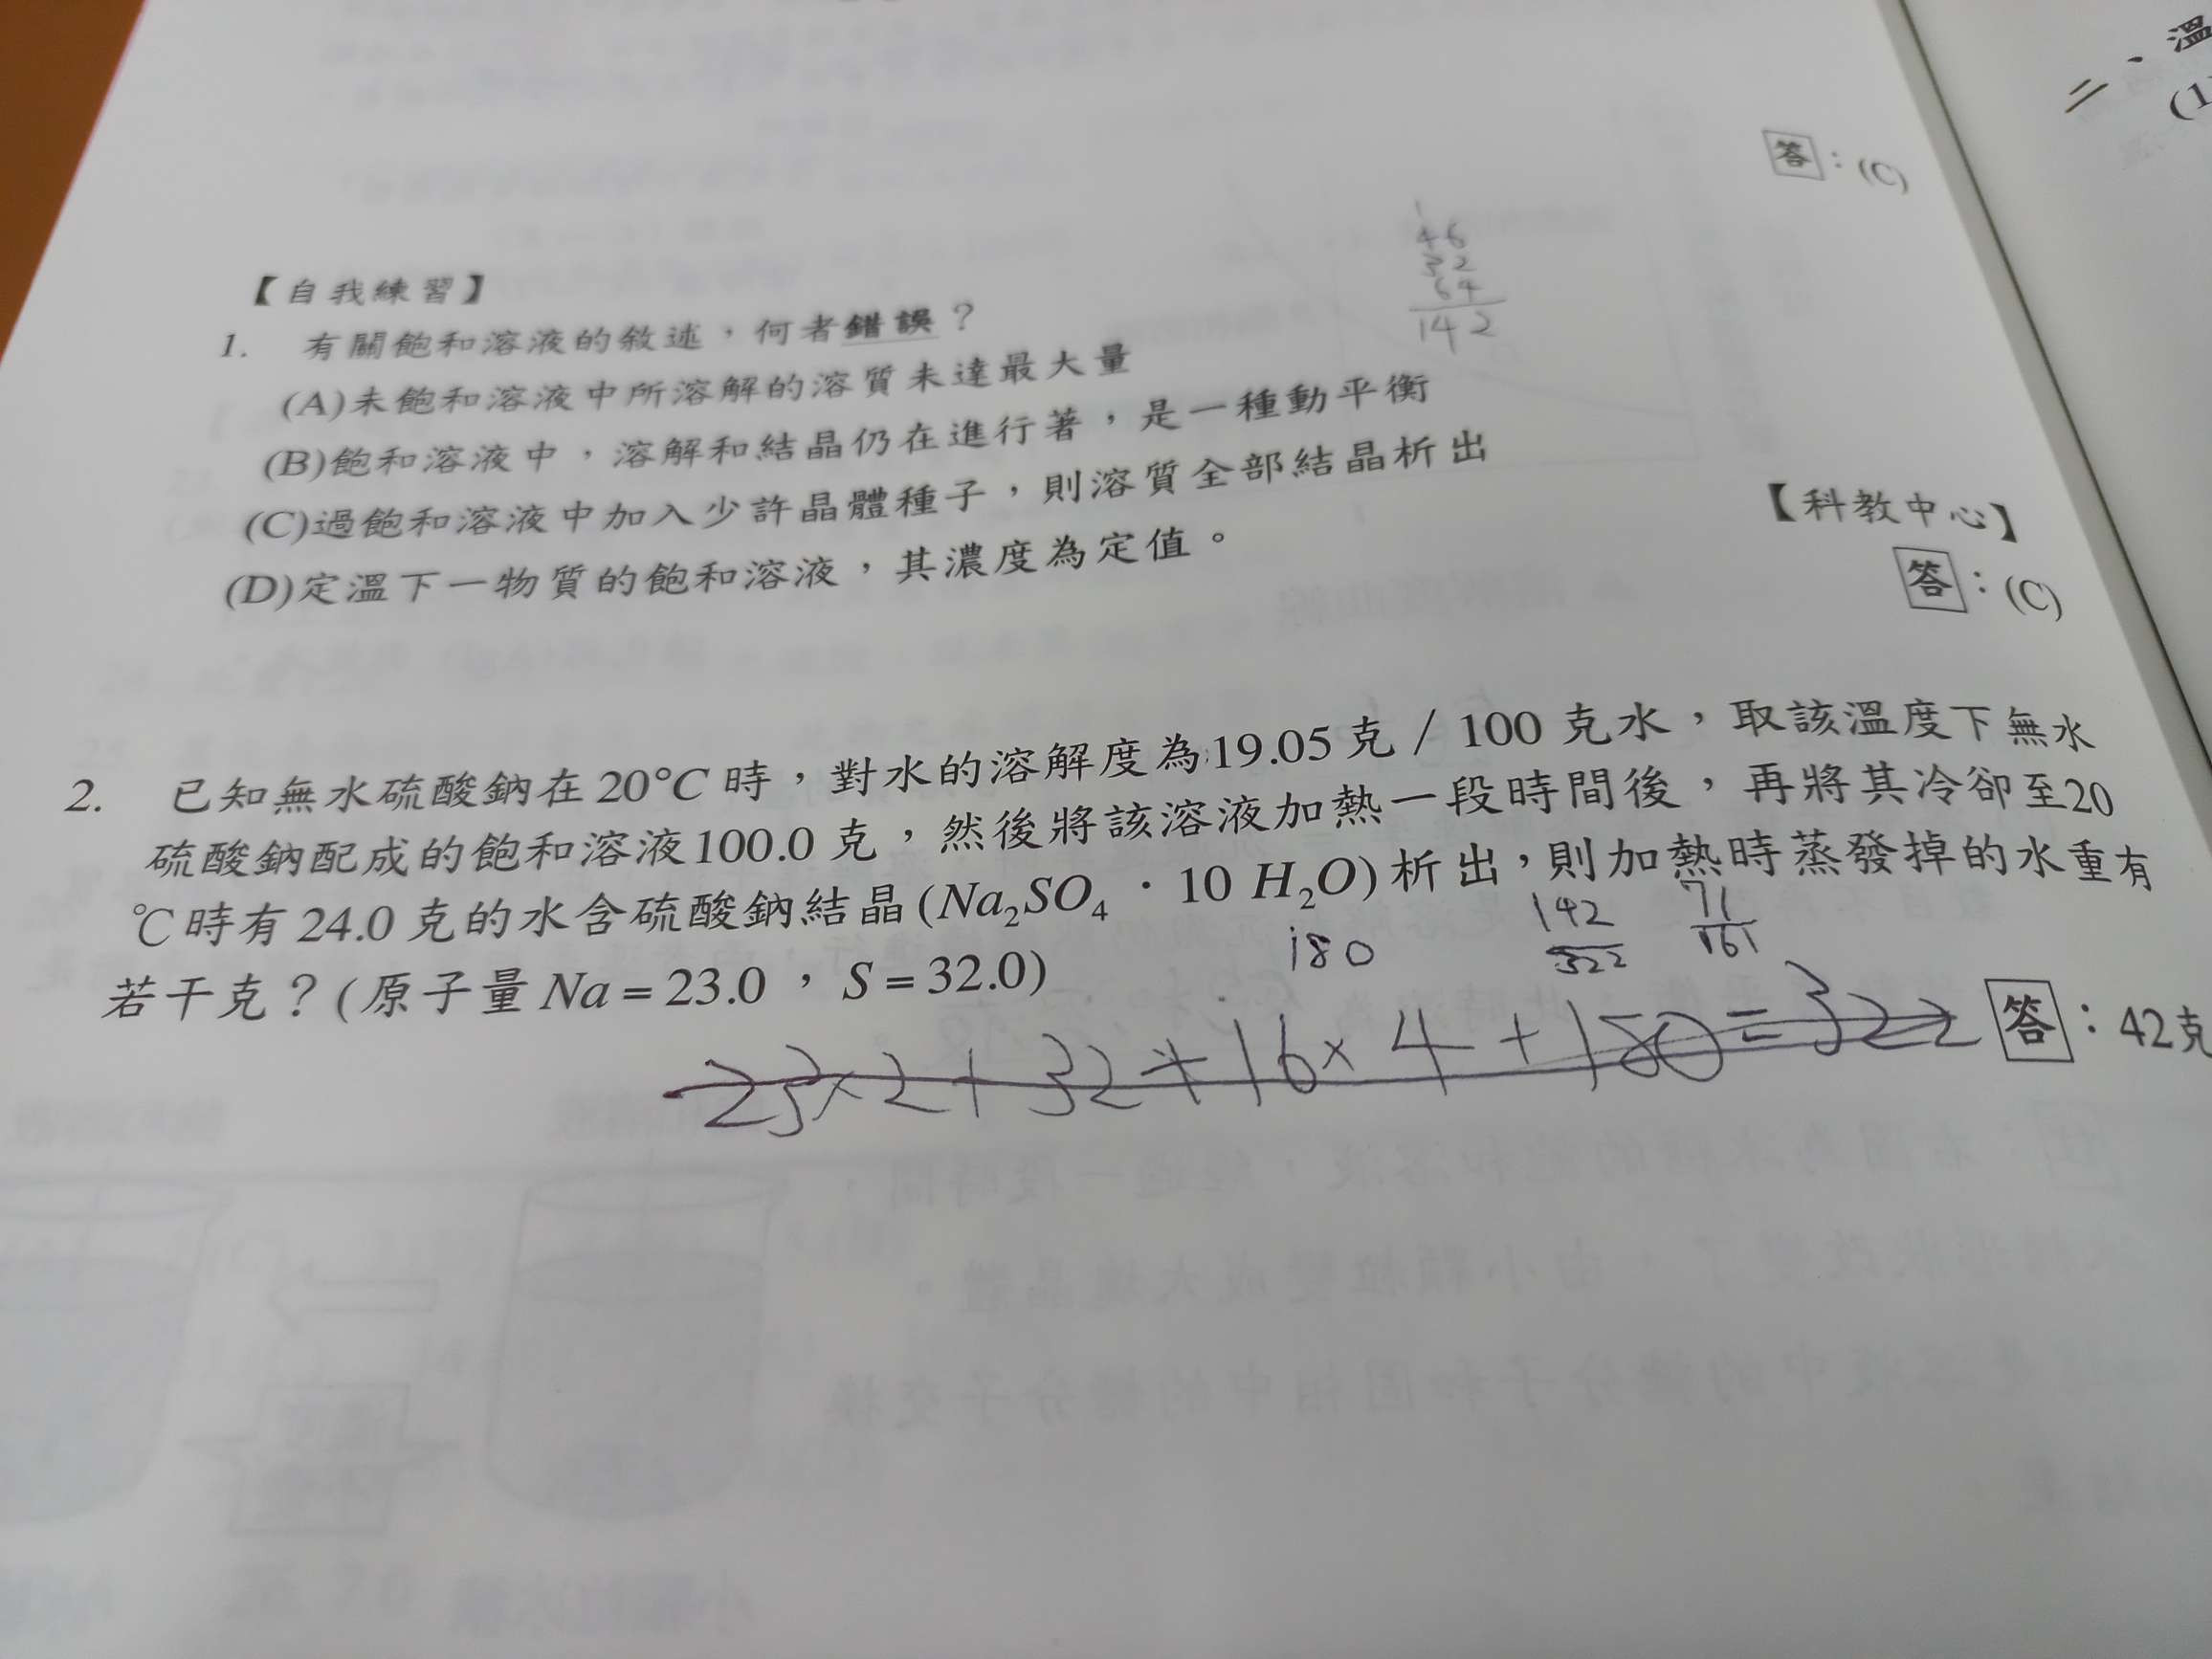 二、溫
(1
答：(C)
1
46
32
64
142
【自我練習】
1. 有關飽和溶液的敘述，何者錯誤？
(A)未飽和溶液中所溶解的溶質未達最大量
(B)飽和溶液中，溶解和結晶仍在進行著，是一種動平衡
(C)過飽和溶液中加入少許晶體種子，則溶質全部結晶析出
(D)定溫下一物質的飽和溶液，其濃度為定值。
【科教中心】
答：(C)
2. 已知無水硫酸鈉在20°C時，對水的溶解度為19.05克／100克水，取該溫度下無水
硫酸鈉配成的飽和溶液100.0克，然後將該溶液加熱一段時間後，再將其冷卻至20
℃時有24.0克的水含硫酸鈉結晶(Na₂SO₄．10 H₂O)析出，則加熱時蒸發掉的水重有
若干克？(原子量Na=23.0，S=32.0)
180
142
322
71
161
23×2+32+16×4+180=322
答：42克